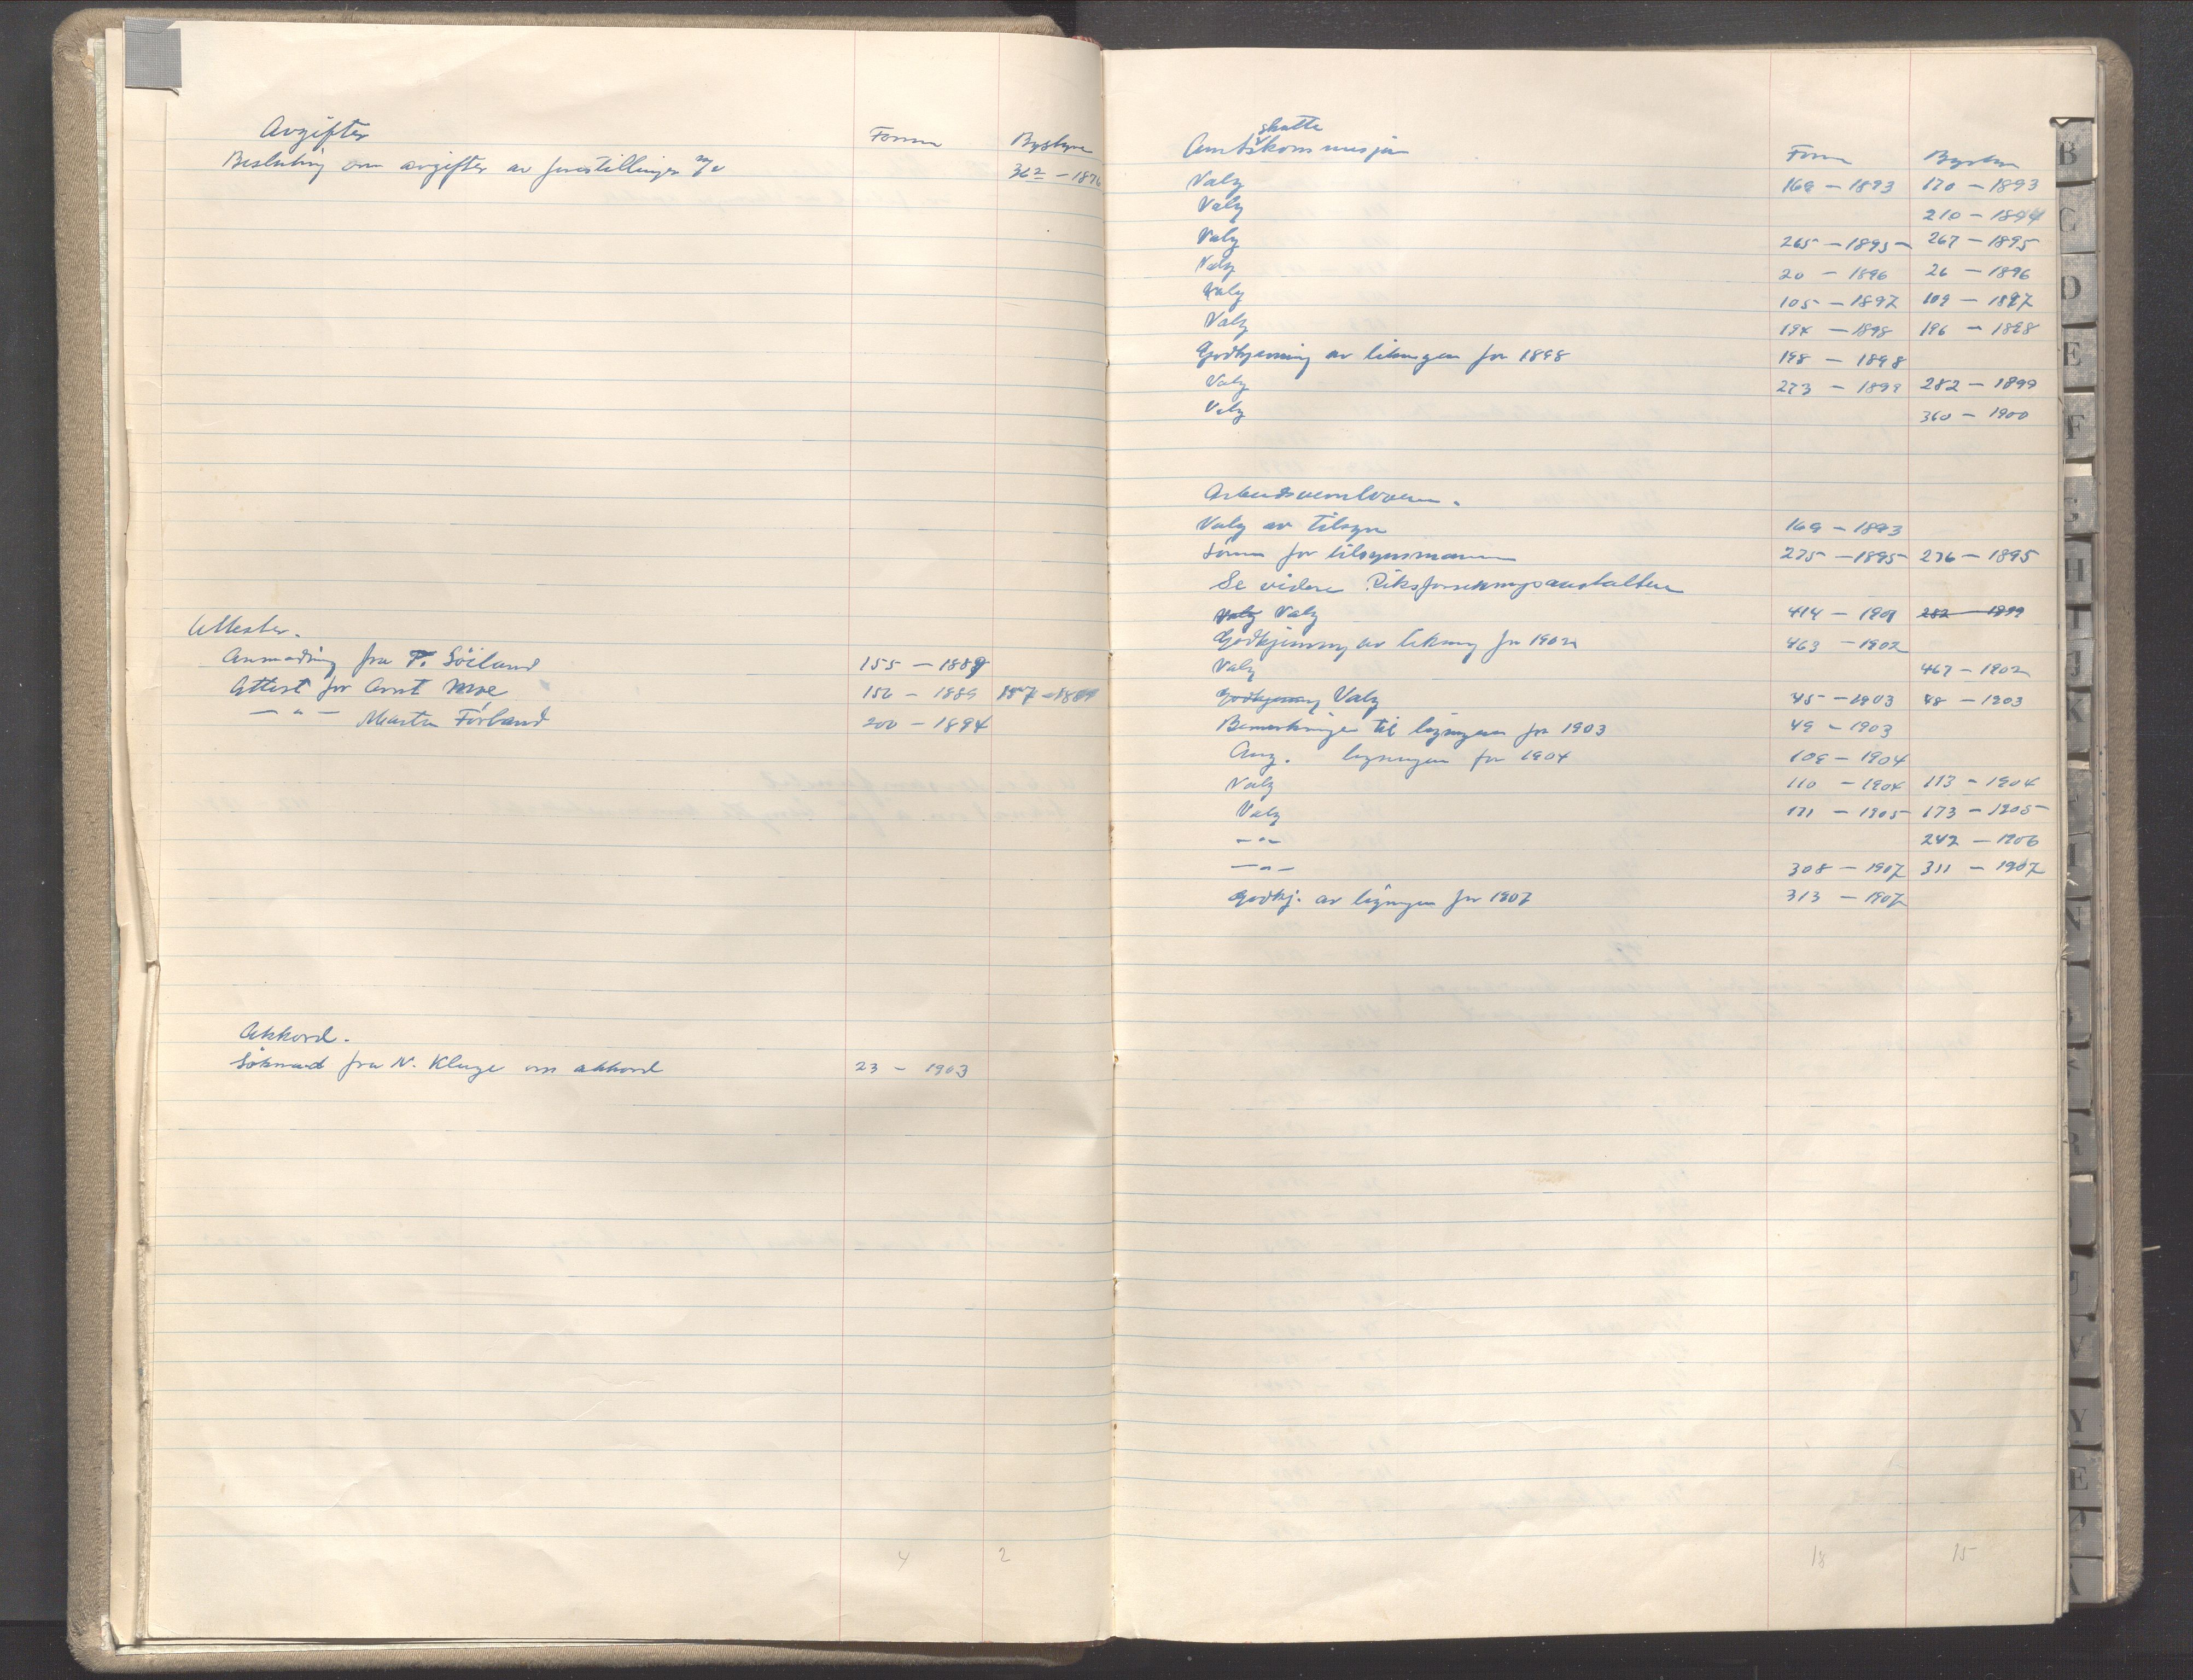 Avgifter Form Bystyre
Beslutning om avgifter av forestillinger m/v 362 - 1876
Attester.
Anmodning fra T. Söiland 155 - 1889
Attest for Arnt Moe 156 - 1889 157 - 1889
— " — Martin Förland 200 - 1894
Akkord.
Söknad fra N. Kluge om akkord 23 - 1903
4 2
skatte
Amtskommisjon Form Bystyre
Valg 169 - 1893 170 - 1893
Valg 210 - 1894
Valg 265 - 1895 267 - 1895
Valg 20 - 1896 26 - 1896
Valg 105 - 1897 109 - 1897
Valg 194 - 1898 196 - 1898
Godkjenning av likningen for 1898 198 - 1898
Valg 273 - 1899 282 - 1899
Valg 360 - 1900
Arbeidsvernloven.
Valg av tilsyn 169 - 1893
Lönn for tilsynsmannen 275 - 1895 276 - 1895
Se videre Riksforsikringsanstalten
Valg Valg 414 - 1901 282 - 1899
Godkjenning av likning for 1902 463 - 1902
Valg 467 - 1902
Godkjenning Valg 45 - 1903 48 - 1903
Bemerkninger til ligningen for 1903 49 - 1903
Ang. ligningen for 1904 109 - 1904
Valg 110 - 1904 113 - 1904
Valg 171 - 1905 173 - 1905
— " — 242 - 1906
— " — 308 - 1907 311 - 1907
Godkj. av ligningen for 1907 313 - 1907
18 15
B
C
D
E
F
G
H
I
J
K
N
R
U
V
Y